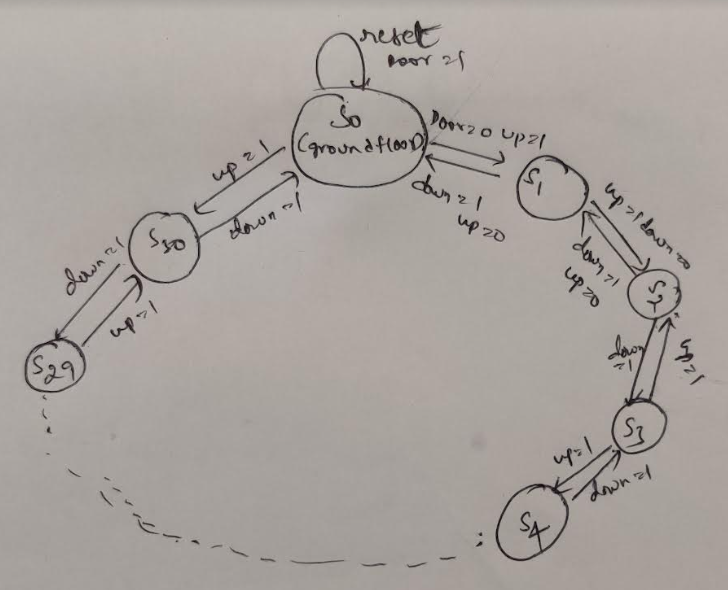 reset
Door=1
S0
(groundfloor)
Door=0 up=1
down=1
up=0
S1
up=1 down=0
down=1
up=0
S2
down
=1
up=1
S3
up=1
down=1
S4
up=1
down=1
S30
down=1
up=1
S29